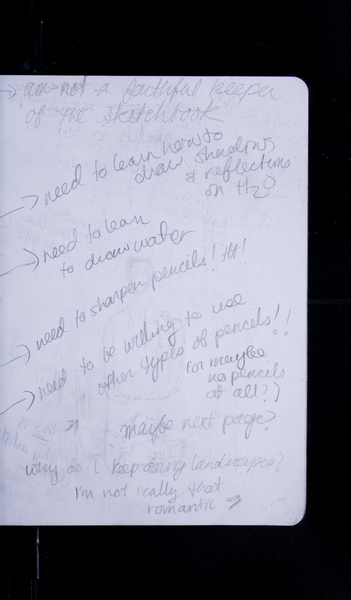 → am not a faithful keeper
of the sketchbook
→ need to learn how to
draw shadows
& reflections
on H2O
→ need to lean
to draw water
→ need to sharpen pencils!
→ need to be willing to use
other types of pencils!!
(or maybe
no pencils
at all?)
maybe next page?
why do I keep doing landscapes?
I'm not really that
romantic